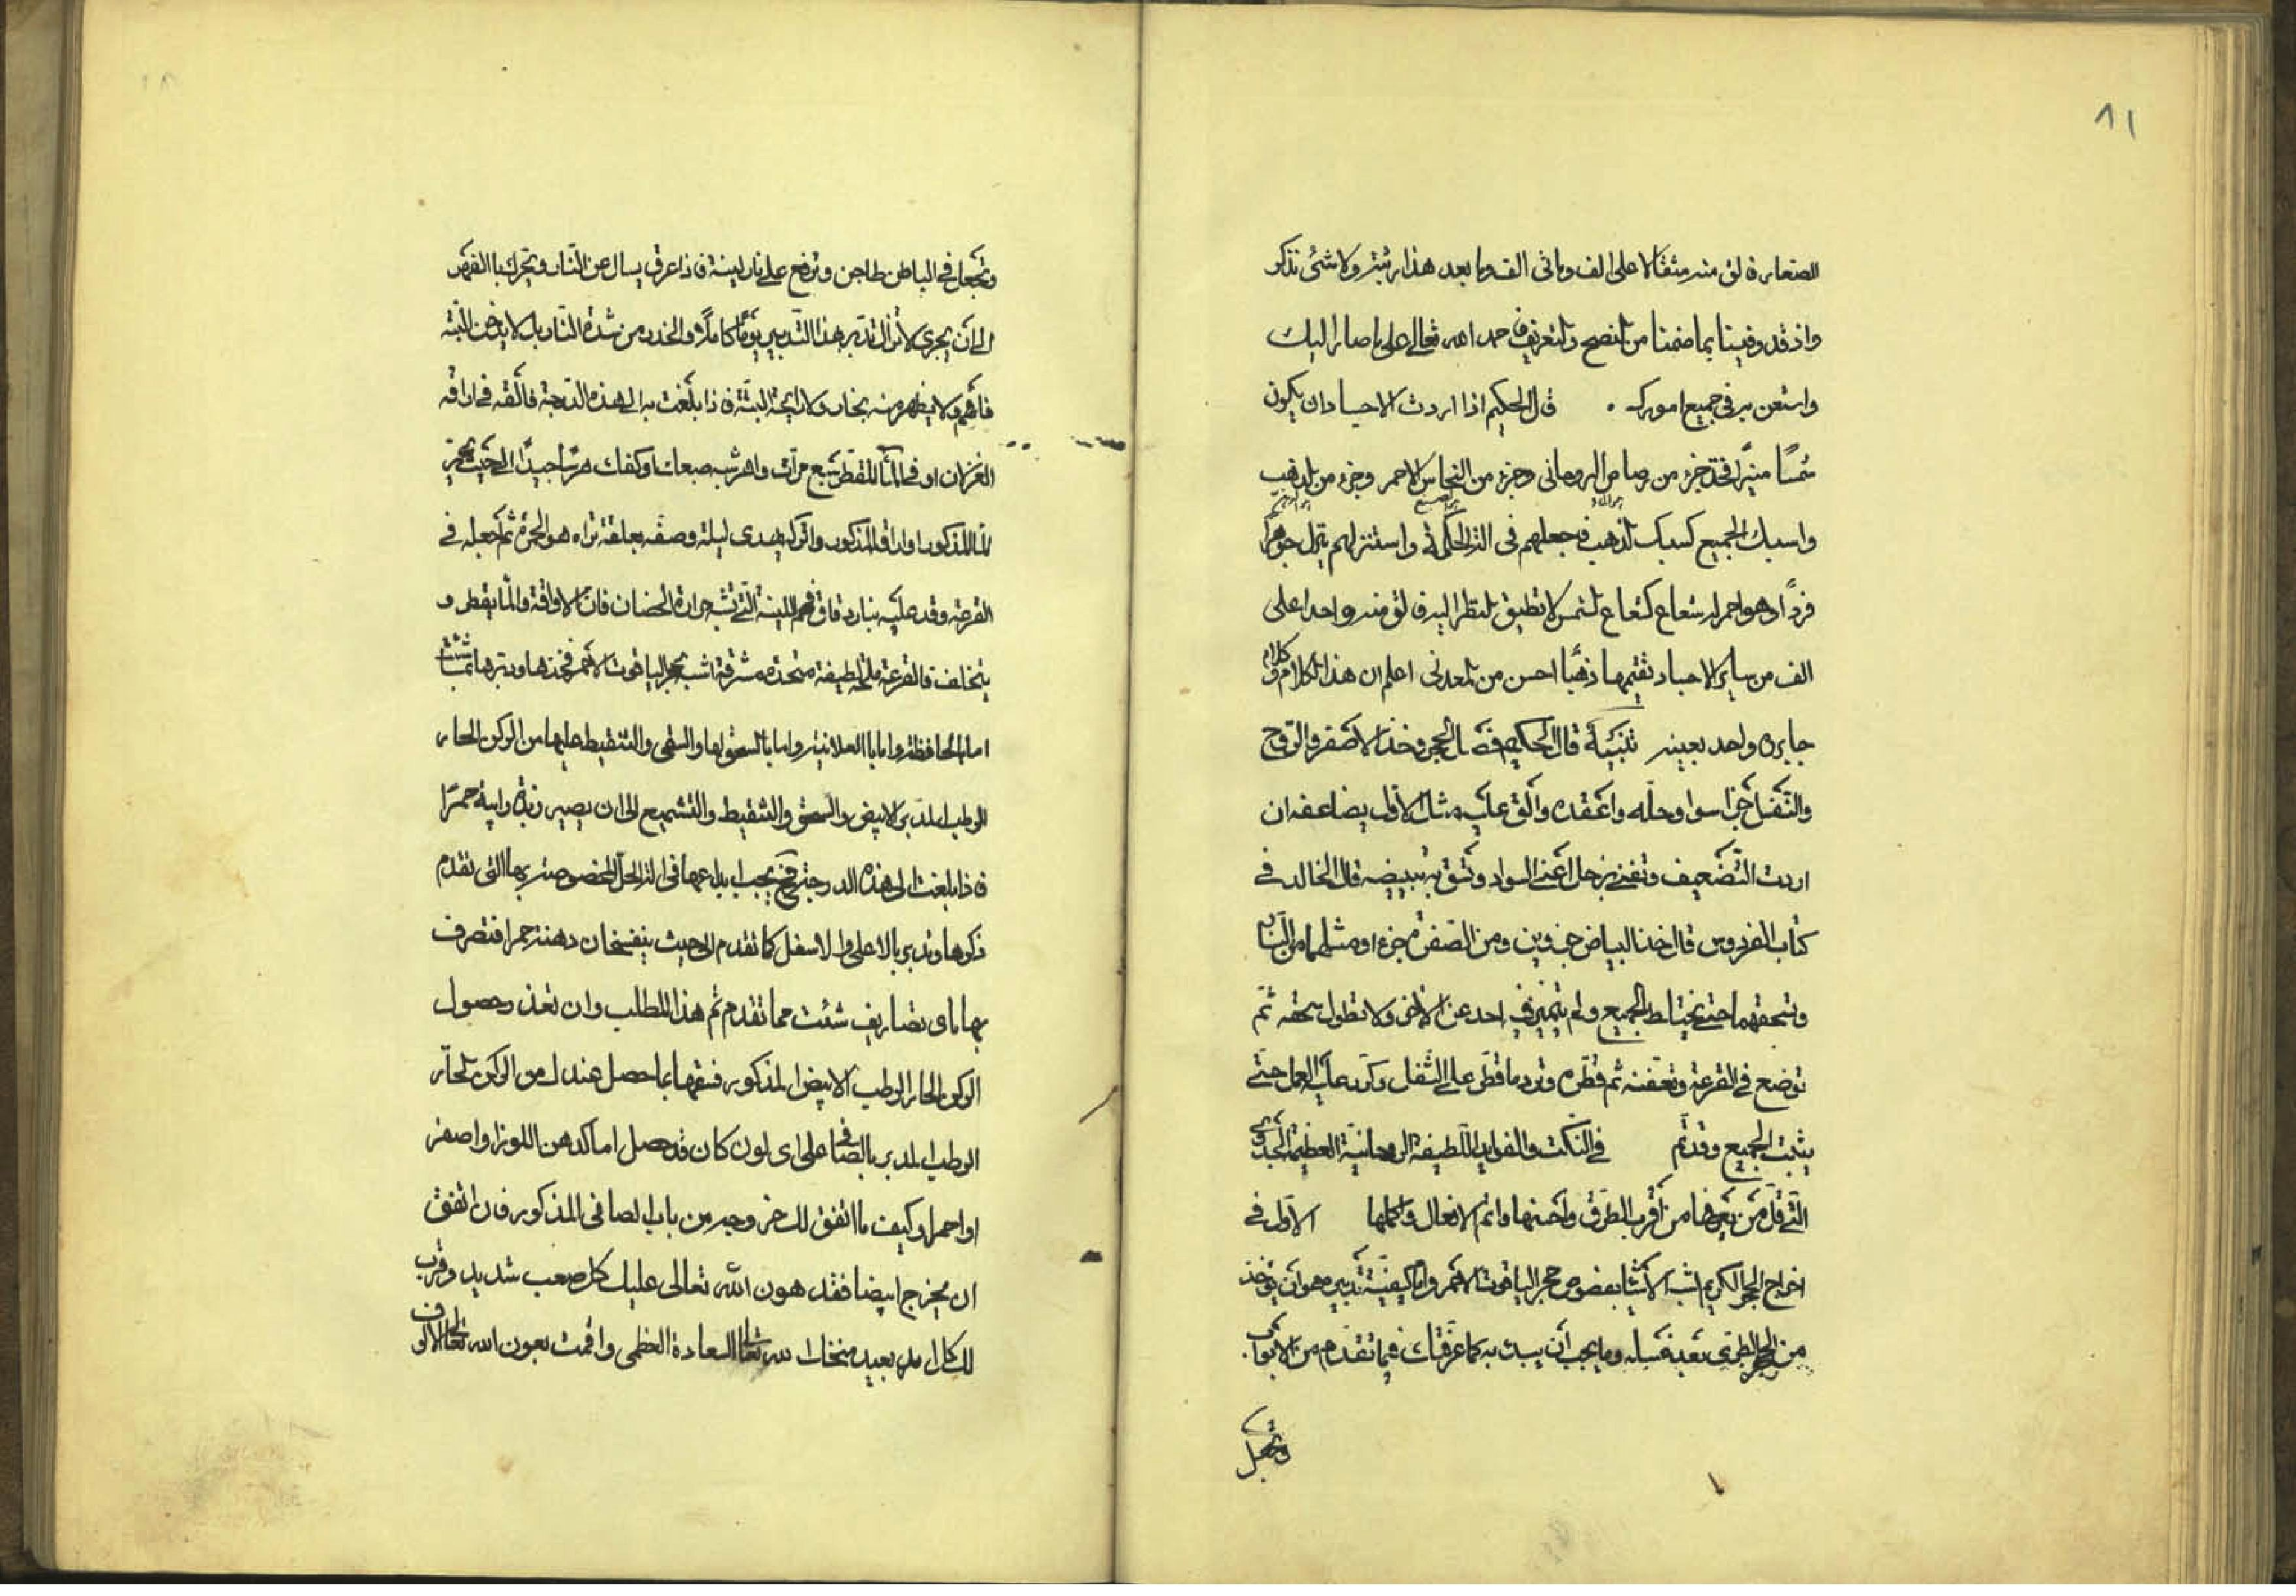 ٨١
الصغار فالق منه مثقالا على الف وماتى الف وما بعد هذا رتبة ولا شئ نذكر
واذ قد وفينا بما ضمنا من النصح والتعريف فاحمد الله تعالى على ما صار اليك
واستعن به فى جميع امورك . قال الحكيم اذا اردت الاجساد ان يكون
شمسًا منيرًا فخذ جزء من رصاص الروحانى وجزء من النحاس الاحمر وجزء من الذهب
واسبك الجميع كسبك الذهب فاجعلهم فى الترابل واستنزلهم ينزل جوهرا
فردًا وهو احمر له شعاع كشعاع الشمس لا تطيق النظر اليه فالق منه واحدا على
الف من ساير الاجساد تقيمها ذهبًا احسن من المعدنى اعلم ان هذا الكلام وكلام
جابر واحد بعينه تنبيه قال الحكيم فصل الحجر وخذ الاصفر والروح
والثفل اجزا سوا وحله واعقده والق عليه مثال الاول يضاعفه ان
اردت التضعيف وتغنى بزحل اعنى السواد وتثق به تبييضه قال الخالد فى
كتاب الفردوس قال خذ البياض جزوين ومن الصفرة جزءا ومثلهما من النار
وتسحقهما حتى يختلط الجميع ولم يتميز فى احد عن الاخر ولا تطول سحقه ثم
توضع فى القرعة وتعفنه ثم قطره وترد ما قطر على الثفل وكرر عليه العمل حتى
يثبت الجميع وقد تم فى النكت والفوايد اللطيفة الروحانية العظيمة الجدوى
التى قل من يعرفها من اقرب الطرق واحسنها واتم الافعال واكملها الاول فى
اخراج الحجر الكريم اشبه الاشيا بفصوص حجر الياقوت الاحمر واما كيفية تدبيره هو ان يوخذ
من الحجر الطرى بعد غسله وما يجب ان يبدت به كما عرفتك فيما تقدم من الابواب
وتجعل
وتجعل فى الباطن طاجن وترفع على نار لينة فاذا عرق يسال عن النار وتحرك بالفهر
الى ان يجرى لا تزال تدبر هذا التدبير يومًا كاملا والحذر من شدة النار بل لا يدخن البتة
فافهم ولا يظهر منه بخار ولا رائحة البتة فاذا بلغت به الى هذه الدرجة فالقه فى اراقه
الغزلان او فى الماء المقطر سبع مرات واهرشه بصبعك او كفك هرسًا جيدًا الى حيث يحمر
الماء المذكور او اراق المذكور واتركه يهدى ليلة وصفه بعلقة تراه هو الحمرة ثم اجعله فى
القرعة وقد عليه بنار دقاق فحم اللينة التى تشبه حرارة الحضان فان الاراقة والما يقطر و
يتخلف فى القرعة ملحة لطيفة متحدة مشرقة اشبه بحجر الياقوت الاحمر فخذها ودبرها بما شئت
اما بالحافظة واما بالعلانية واما بالسحق لها والسقى والتنقيط عليها من الركن الحار
الرطب المدبر الابيض والسحق والتنقيط والتشميع الى ان يصير زبدة رايبة حمرًا
فاذا بلغت الى هذه الدرجة فح يجب ايداعها فى الة الحل المخصوصة بها التى تقدم
ذكرها وتدبر بالاعلى والاسفل كما تقدم الى حيث ينفسخان دهنة حمرا فتصرف
بها باى تصاريف شئت مما تقدم ثم هذا المطلب وان تعذر حصول
الركن الحار الرطب الابيض المذكور فسقها بما حصل عندك من الركن الحار
الرطب المدبر بالصافى على اى لون كان قد حصل اما كدهن اللوز او اصفر
او احمر او كيف ما اتفق لك خروجه من باب الصافى المذكور فان اتفق
ان يخرج ابيضا فقد هون الله تعالى عليك كل صعب شديد وقرب
لك كل امد بعيد منحك الله تعالى السعادة العظمى واقمت بعون الله تعالى الالوف